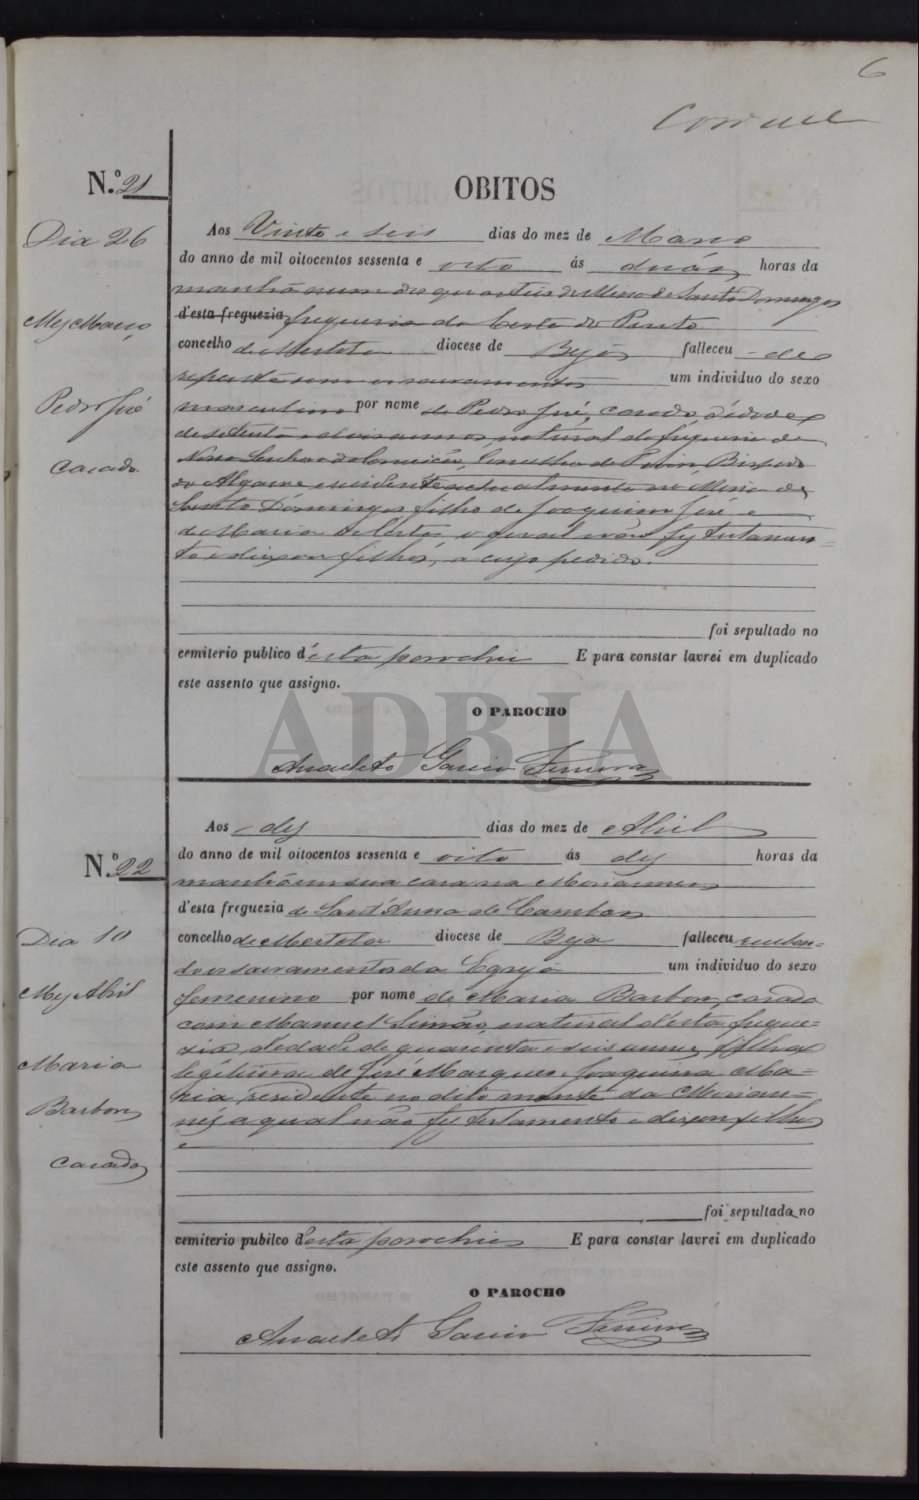 6
OBITOS
N.º 21
Dia 26
Mez Março
Pedro José
Casado
Aos Vinte e seis dias do mez de Março
do anno de mil oitocentos sessenta e oito ás duas horas da
manhã num dos quarteis da Mina de Santo Domingos
d'esta freguezia, freguezia da Corte do Pinto
concelho de Mertola diocese de Beja falleceu de
repente sem os sacramentos um individuo do sexo
masculino por nome de Pedro José, casado, d'idade
de setenta e dois annos, natural da freguezia de
Nossa Senhora da Conceição, Concelho de Bispado
do Algarve e residente actualmente na Mina de
Santo Domingos filho de Joaquim José e
de Maria o qual não fez testamen-
to e deixou filhos,
foi sepultado no
cemiterio publico d'esta parochia E para constar lavrei em duplicado
este assento que assigno.
O PAROCHO
Anacleto Garcia Ferreira
ADBJA
N.º 22
Dia 10
Mez Abril
Maria
Barbora
Casada
Aos dez dias do mez de Abril
do anno de mil oitocentos sessenta e oito ás dez horas da
manhã em sua casa na
d'esta freguezia de Sant'Anna de Cambas
concelho de Mertola diocese de Beja falleceu receben-
do os sacramentos da Egreja um individuo do sexo
femenino por nome de Maria Barbora, casada
com Manuel Simão, natural d'esta fregue-
zia, d'idade de quarenta e seis annos, filha
legitima de José Marques e Joaquina Ma-
ria, residente no dito monte da
a qual não fez testamento e deixou filhos
foi sepultada no
cemiterio pubilco d'esta parochia E para constar lavrei em duplicado
este assento que assigno.
O PAROCHO
Anacleto Garcia Ferreira